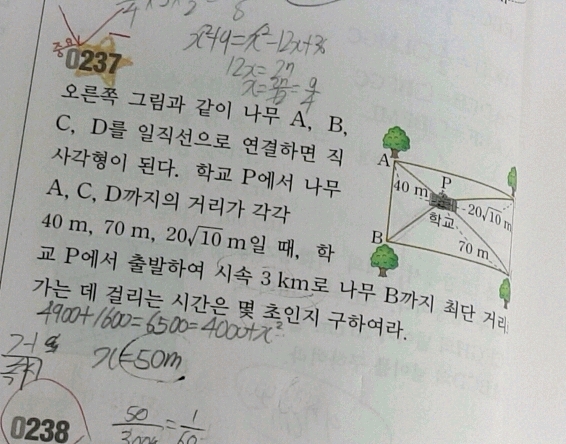 x²+9=x²-12x+36
12x=27
x=27/12=9/4
중요
0237
오른쪽 그림과 같이 나무 A, B,
C, D를 일직선으로 연결하면 직
사각형이 된다. 학교 P에서 나무
A, C, D까지의 거리가 각각
40 m, 70 m, 20√10 m일 때, 학
교 P에서 출발하여 시속 3 km로 나무 B까지 최단 거리
가는 데 걸리는 시간은 몇 초인지 구하여라.
A
P
40 m
20√10 m
학교
B
70 m
4900+1600=6500=4000+x²
x=50m
0238